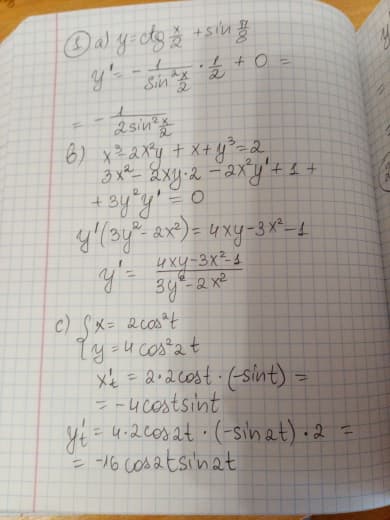 ① a) y = ctg x/2 + sin π/8
y' = - 1/(sin² x/2) · 1/2 + 0 =
= - 1/(2 sin² x/2)
b) x³ - 2x²y + x + y³ = 2
3x² - 2xy·2 - 2x²y' + 1 +
+ 3y²y' = 0
y'(3y² - 2x²) = 4xy - 3x² - 1
y' = (4xy - 3x² - 1)/(3y² - 2x²)
c) { x = 2cos²t
y = 4cos²2t
x't = 2·2cost · (-sint) =
= -4costsint
y't = 4·2cos2t · (-sin2t)·2 =
= -16cos2tsin2t